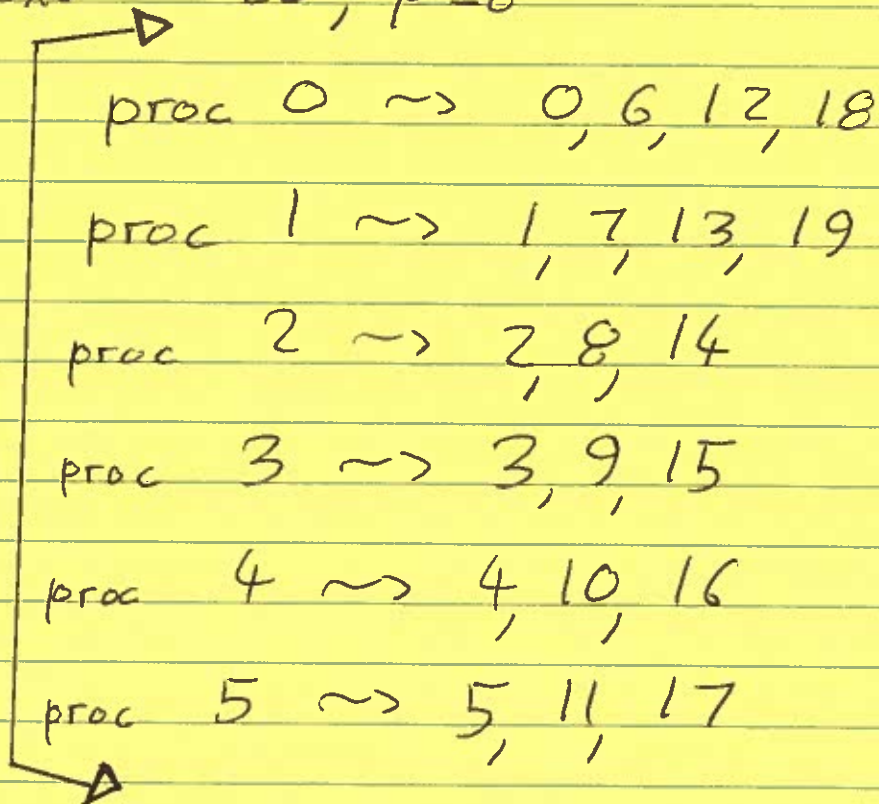 , p=6
proc 0 ~> 0, 6, 12, 18
proc 1 ~> 1, 7, 13, 19
proc 2 ~> 2, 8, 14
proc 3 ~> 3, 9, 15
proc 4 ~> 4, 10, 16
proc 5 ~> 5, 11, 17